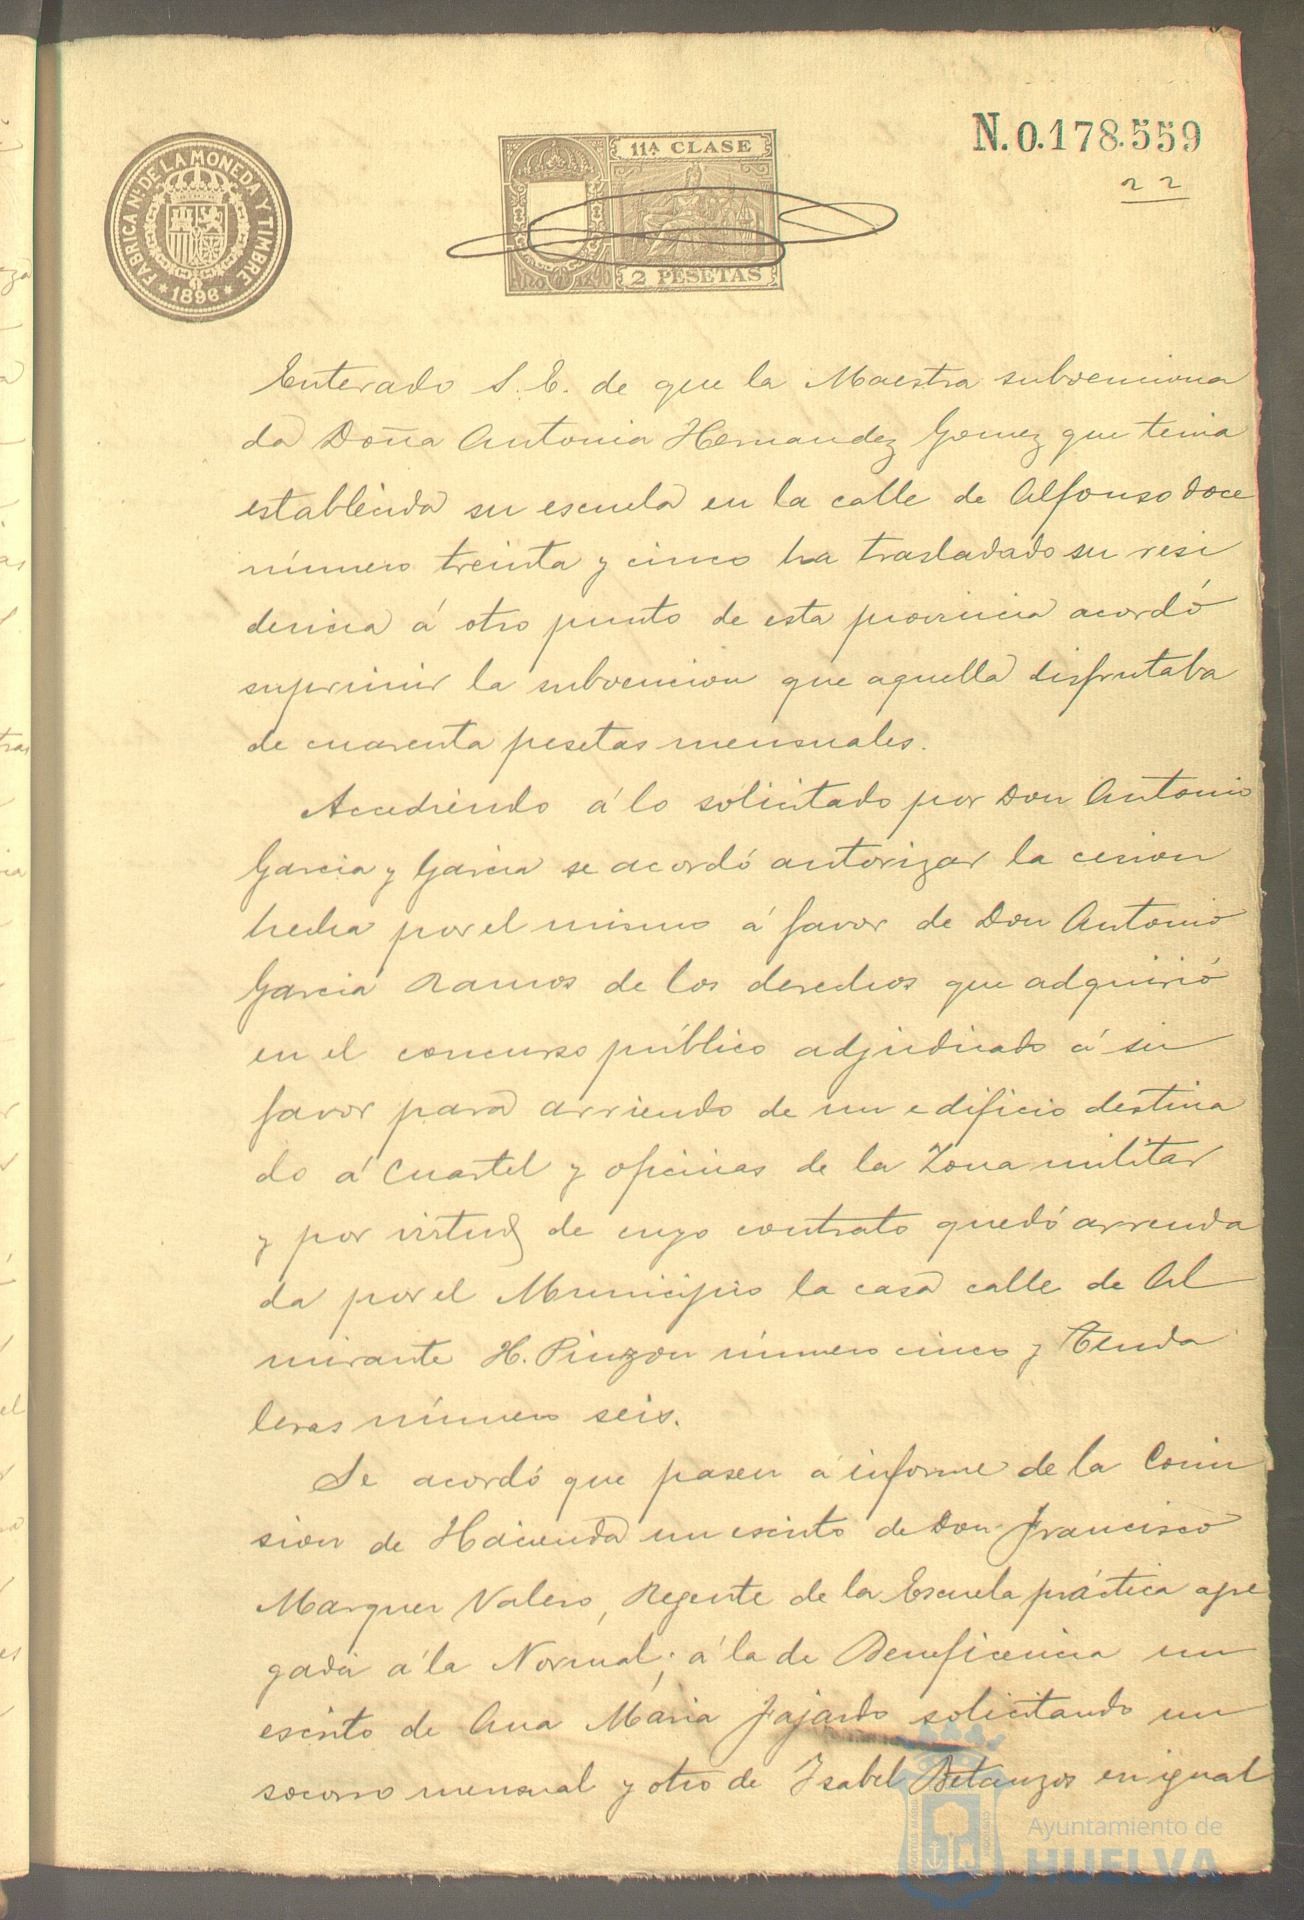 N. 0.178.559
22
FABRICA Nl. DE LA MONEDA Y TIMBRE
* 1896 *
11ª CLASE
2 PESETAS
Enterado S. E. de que la Maestra subvenciona
da Doña Antonia Hernandez Gomez que tenia
establecida su escuela en la calle de Alfonso doce
número treinta y cinco ha trasladado su resi
dencia á otro punto de esta provincia acordó
suprimir la subvencion que aquella disfrutaba
de cuarenta pesetas mensuales.
Accediendo á lo solicitado por Don Antonio
Garcia y Garcia se acordó autorizar la cesion
hecha por el mismo á favor de Don Antonio
Garcia Ramos de los derechos que adquirió
en el concurso público adjudicado á su
favor para arriendo de un edificio destina
do á Cuartel y oficinas de la Zona militar
y por virtud de cuyo contrato quedó arrenda
da por el Municipio la casa calle de Al
mirante H. Pinzon número cinco y Tenda
leras número seis.
Se acordó que pasen á informe de la Comi
sion de Hacienda un escrito de Don Francisco
Marquez Valero, Regente de la Escuela práctica agre
gada á la Normal; á la de Beneficencia un
escrito de Ana Maria Fajardo solicitando un
socorro mensual y otro de Isabel Betanzos en igual
Ayuntamiento de
HUELVA